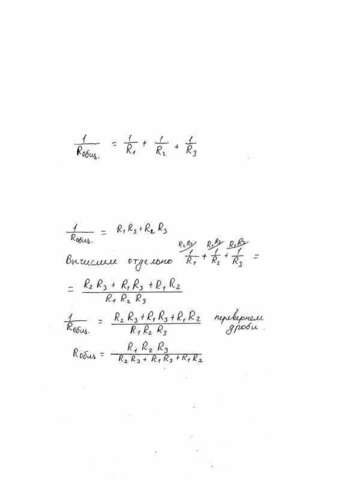 1/Rобщ. = 1/R₁ + 1/R₂ + 1/R₃
1/Rобщ. = R₁ R₂ + R₂ R₃
Вычислим отдельно R₂R₃/1/R₁ + R₁R₃/1/R₂ + R₁R₂/1/R₃ =
= (R₂ R₃ + R₁ R₃ + R₁ R₂)/(R₁ R₂ R₃)
1/Rобщ. = (R₂ R₃ + R₁ R₃ + R₁ R₂)/(R₁ R₂ R₃) перевернем дроби.
Rобщ = (R₁ R₂ R₃)/(R₂ R₃ + R₁ R₃ + R₁ R₂)